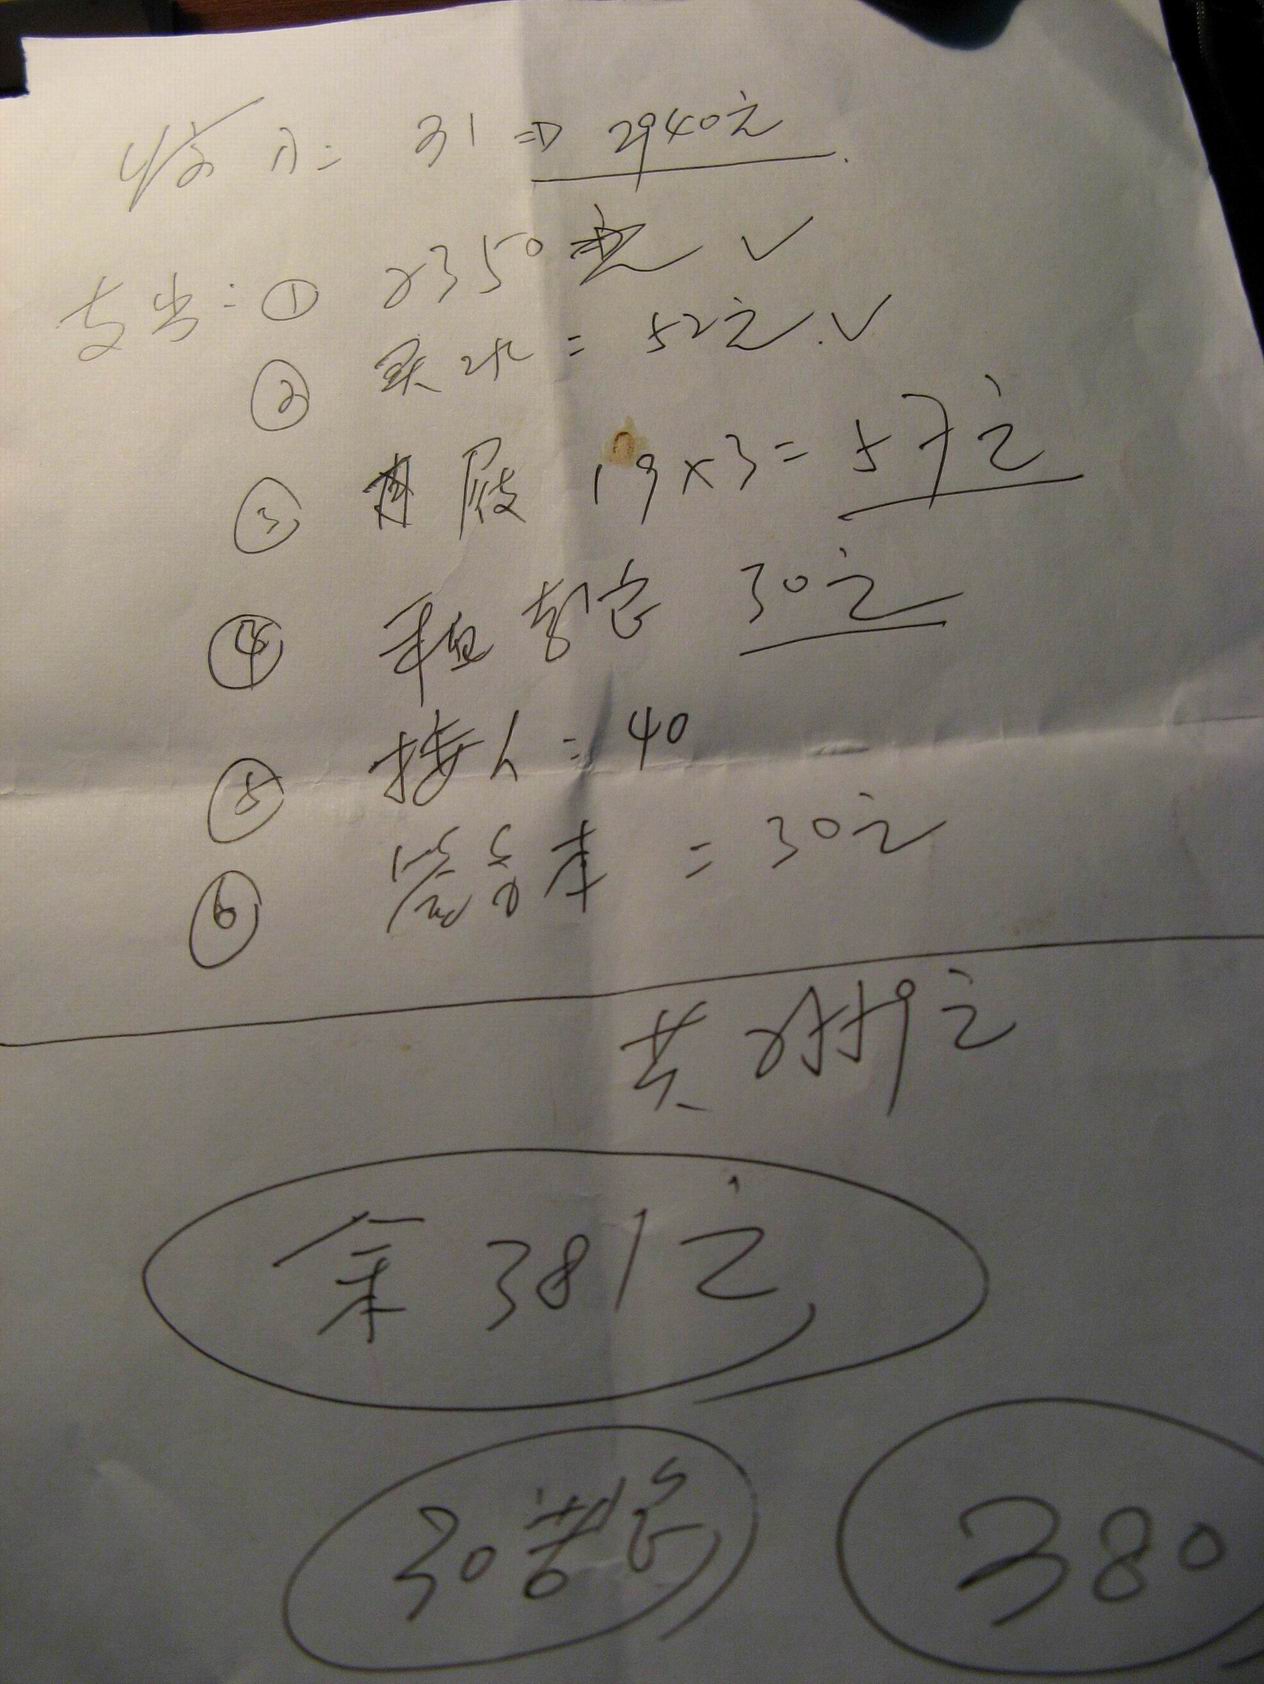 收入: 31 => 2940元
支出: ① 2350元 ✓
② 买水 = 52元 ✓
③ 19×3 = 57元
④ 租 30元
⑤ 接人: 40
⑥ 车 = 30元
共 2559元
余 381元
30
380